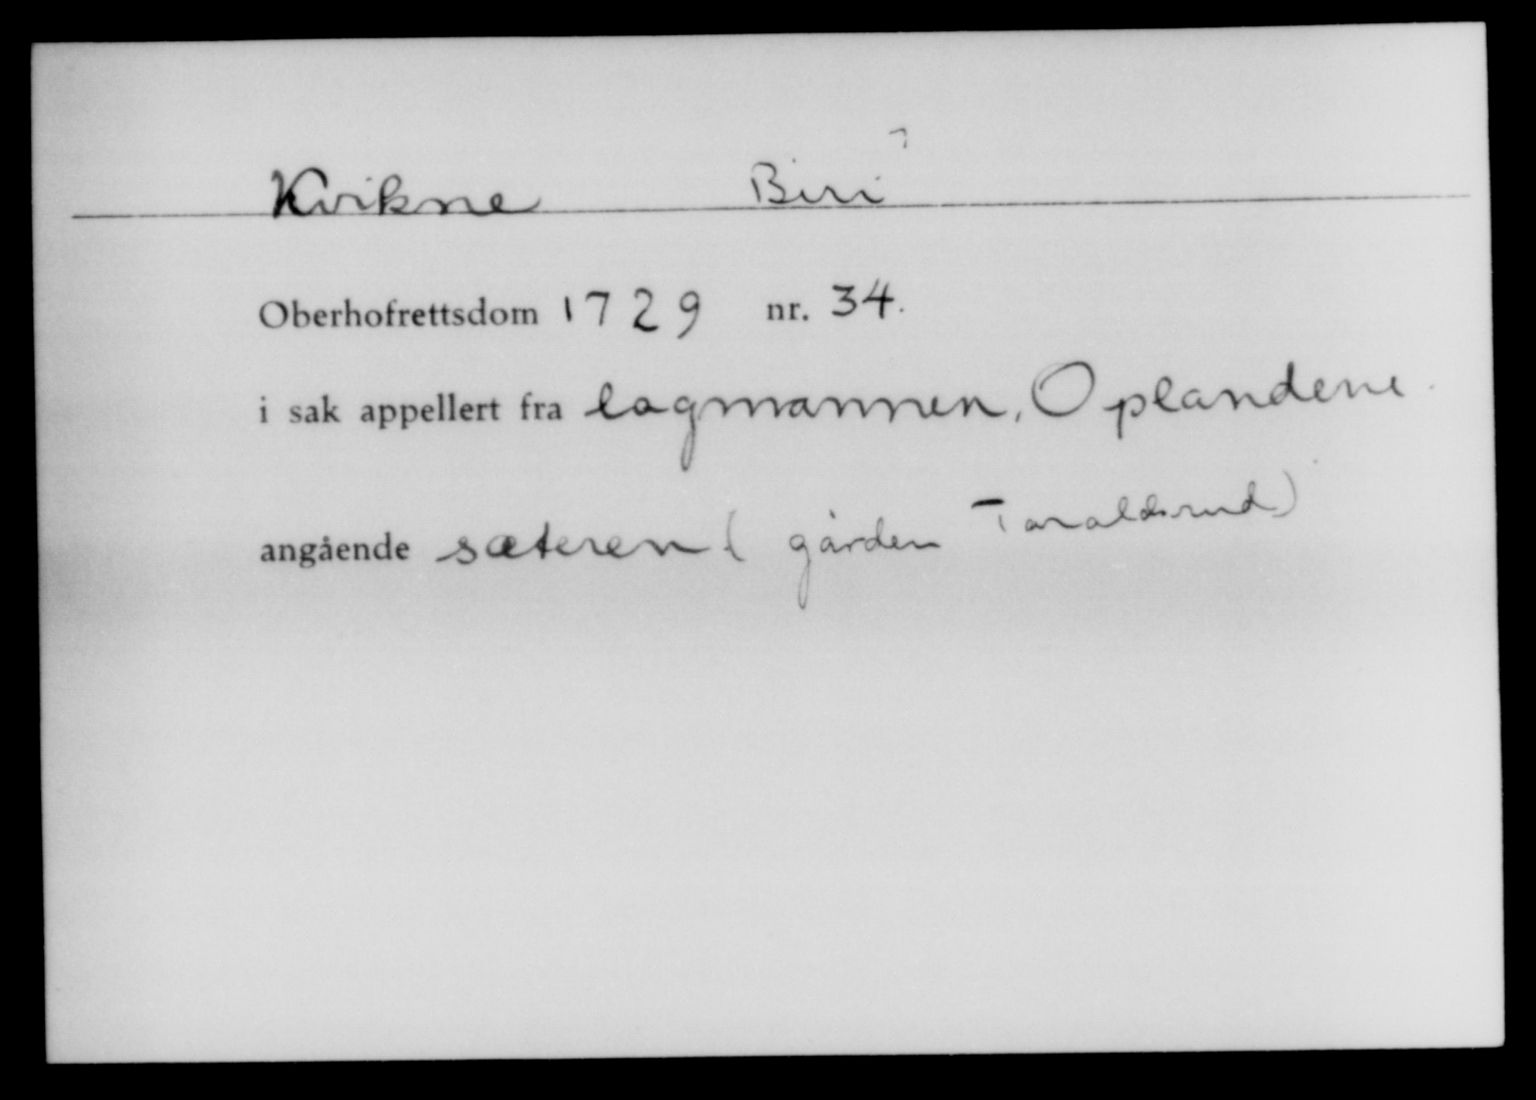 Kvikne Biri
Oberhofrettsdom 1729 nr. 34.
i sak appellert fra lagmannen, Oplandene
angående sæteren (gården Taraldsrud)